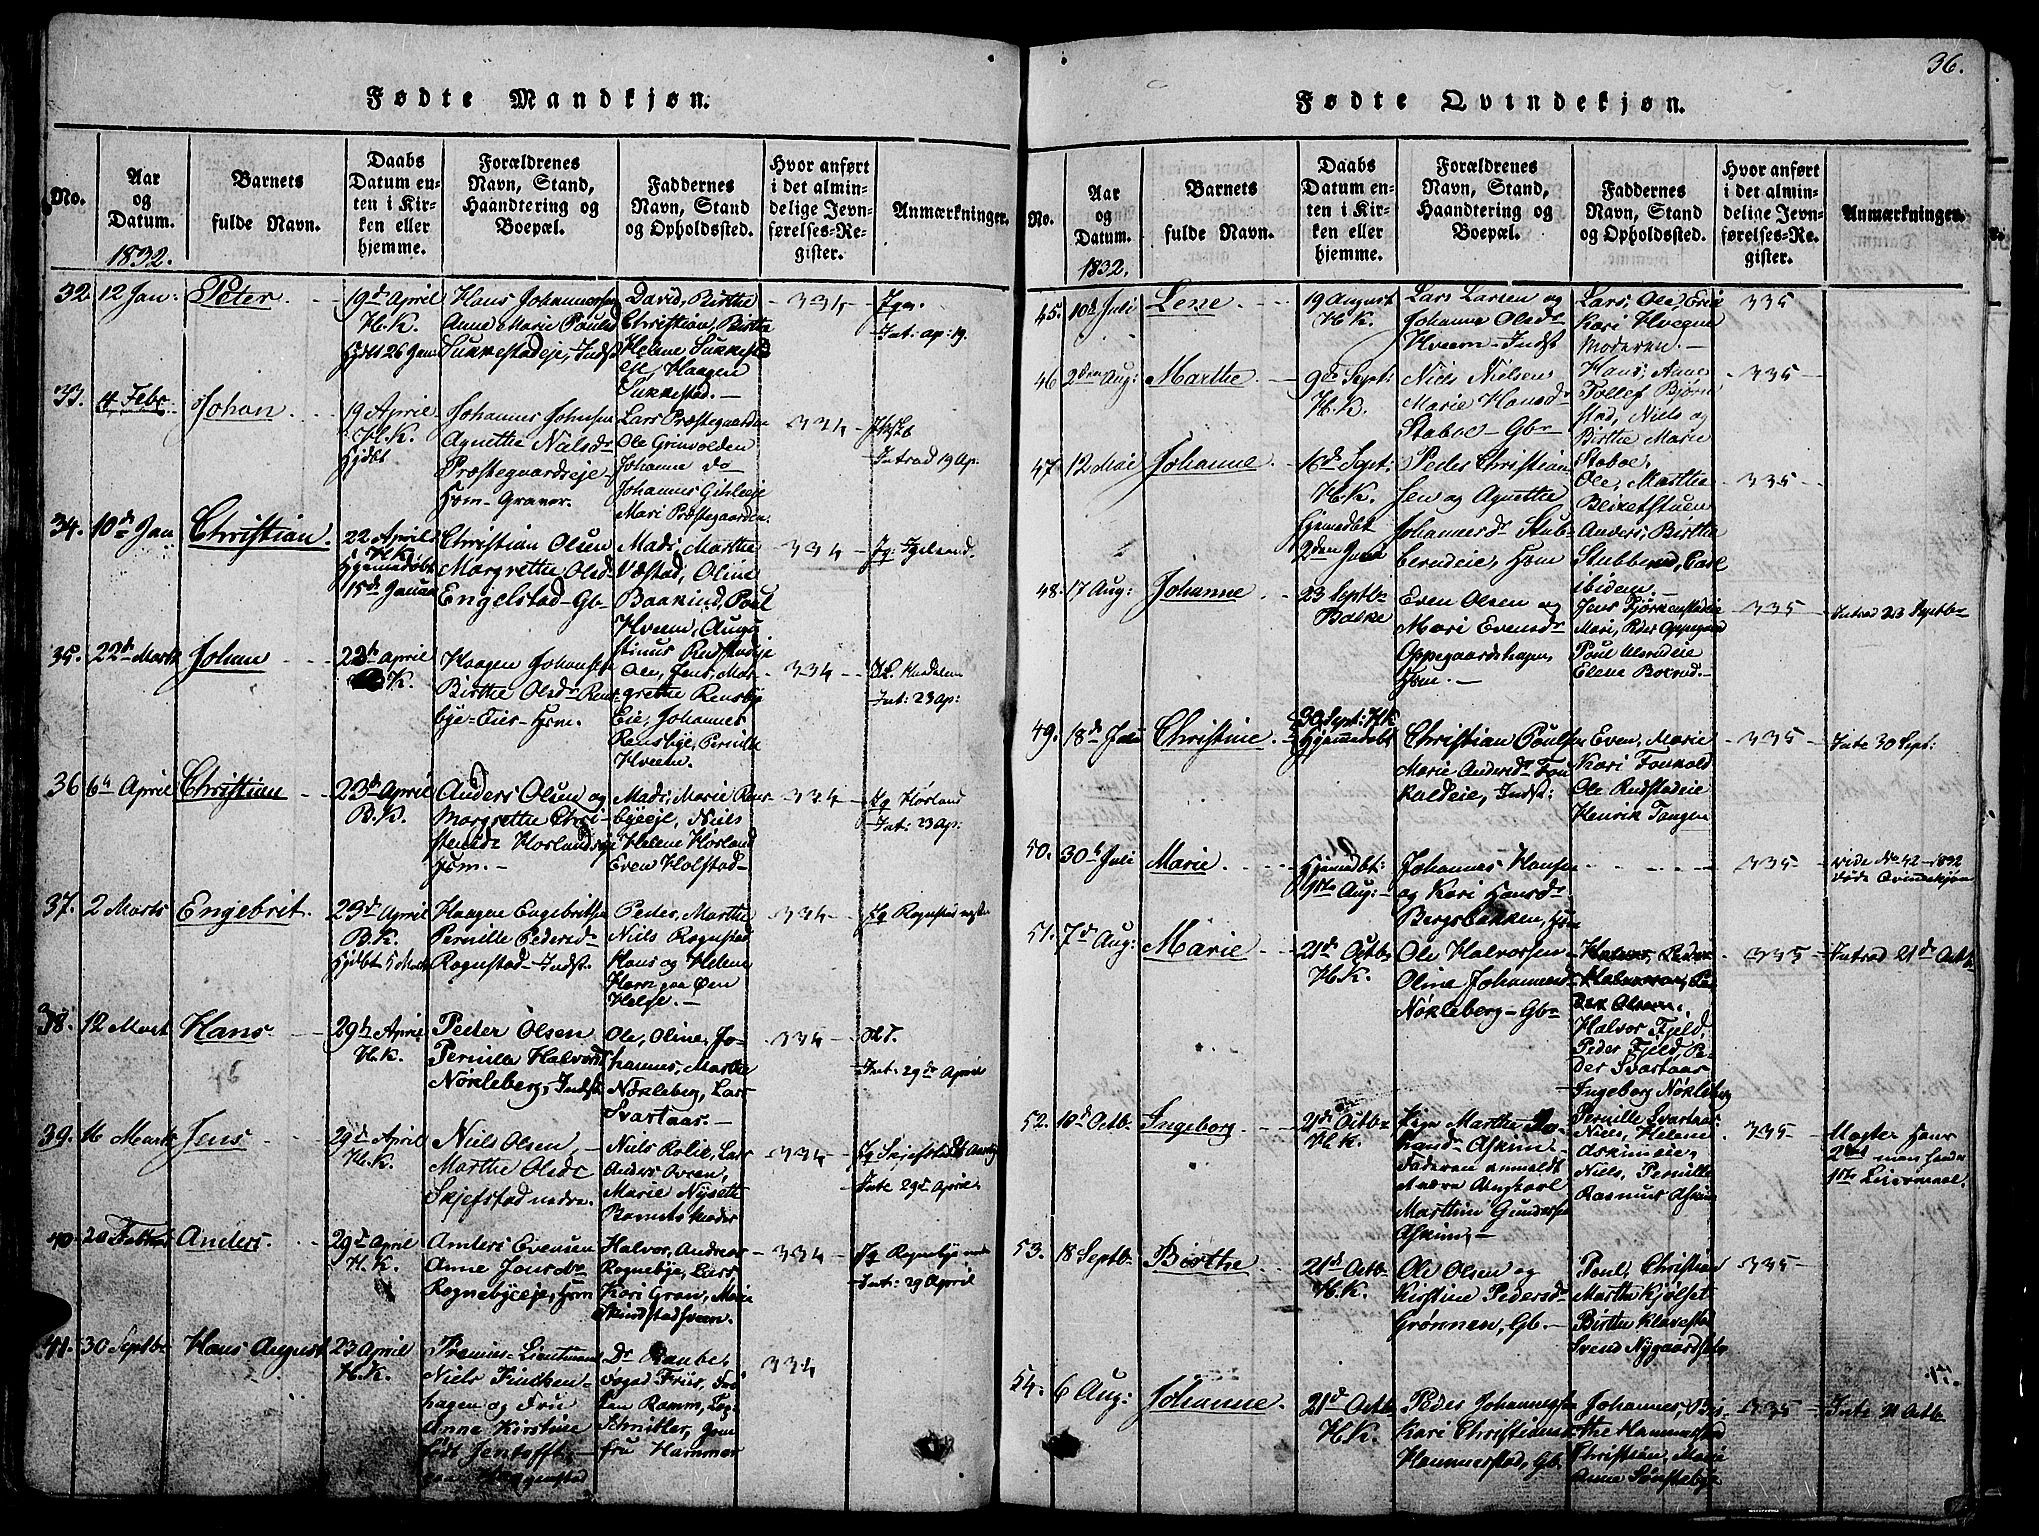 36.
Fødte Mandkjøn.
No.
Aar
og
Datum.
1832.
Barnets
fulde Navn.
Daabs
Datum en-
ten i Kir-
ken eller
hjemme.
Forældrenes
Navn, Stand,
Haandtering og
Boepæl.
Faddernes
Navn, Stand
og Opholdssted.
Hvor anført
i det almin-
delige Jevn-
førelses-Re-
gister.
Anmærkninger.
32. 12 Jan: Peter
19d April
H.K.
Hjdbt 26 Jan
Hans Johannesen
Anne Marie Pouls
Sukkestadeje, Indst
David, Birthe
Christian, Birthe
Helene Sukkestad
eje, Haagen
Sukkestad.
334
Int. ap: 19.
33. 4 Febr Johan
19 April
H.K.
Hjdbt
Johannes Johnsen
Agnethe Nielsd
Præstegaardseje
Hsm - Graver.
Lars Præstegaarden
Ole Grinvolden
Johanne do
Johannes Gihleeje
Mari Præstegaarden.
334
Intrad 19 Ap.
34. 10d Jan Christian.
22 April
H.K.
Hjemmedøbt
15d Januar
Christian Olsen
Margrethe Olsd
Engelstad - Gb
Mads, Marthe
Væstad, Oline
Baarlund, Poul
Hveem, Augu
stinus Rudstadeje
334
35. 22d Marts Johan
22d April
H.K.
Haagen Johanses
Birthe Olsdr Rens
bye - Eier - Hsm.
Ole, Jens, Mar-
grethe Rensbye
Eie, Johannes
Rensbye, Pernille
Hveem.
334
Int: 23 ap:
36 6d April Christian
23d April
B.K.
Anders Olsen og
Margrethe Chri-
stensdr Horlandseje
Hsm.
Mads, Marie Rens
byeeje, Niels
Helene Horland
Even Holstad
334
Jg Horland
Int: 23 ap:
37. 2 Marts Engebrit.
23d April
B.K.
Hjdbt 5 Marts
Haagen Engebritsen
Pernille Pedersd
Rognstad - Indst.
Peder, Marthe
Niels Rognstad
Hans og Helene
Horn paa Øen
Helge.
334
Jg Rognstad
38. 12 Mart Hans
29d April
H.K.
Peder Olsen
Pernille Halvorsd
Nøkleberg, Indst
Ole, Oline, Jo-
hannes, Marthe
Nøkleberg, Lars
Svartaas.
334
Int: 29de April
39. 16 Marts Jens
29d April
H.K.
Niels Olsen
Marthe Olsdr
Skjefstad nedre.
Niels Rolie, Lars
Anders Evren,
Marie Nysette
Barnets Moder
334
Inte 29d April
40. Anders
29d April
H.K.
Anders Evensen
Anne Jonsdr
Rognebyeeje, Hsm
Halvor, Andreas
Rognebye, Lars
Kari Gran, Mari
Skindstadsveen.
334
Int: 29 April
41. 30 Septbr Hans August
23 April
H.K.
Premier-Lieutenant
Niels Finken-
hagen og Frue
Anne Kirstine
født Jentofft
paa Haggenstad
Dr Raube,
Foged Friis, Frø
ken Ramm, Fog
Schnitler, Jom
fru Hammer
334
Fødte Qvindekjøn.
No.
Aar
og
Datum.
1832.
Barnets
fulde Navn.
Daabs
Datum en-
ten i Kir-
ken eller
hjemme.
Forældrenes
Navn, Stand,
Haandtering og
Boepæl.
Faddernes
Navn, Stand
og Opholdssted.
Hvor anført
i det almin-
delige Jevn-
førelses-Re-
gister.
Anmærkninger.
45. 10d Juli Lene
19 August
H.K.
Lars Larsen og
Johanne Olsdr
Hveem - Indst
Lars, Ole, Erik
Kari Hveem
Moderen.
335
46 2den Aug: Marthe
9de Sept:
H.K.
Niels Nielsen
Marie Hansdr
Staboe - Gbr
Hans, Anne
Tollef Bjørn
stad, Niels og
Birthe Marie
Staboe.
335
47. 12 Mai Johanne
16d Sept:
H.K.
Hjemmedbt
2den Juni
Peder Christian
sen og Agnethe
Johannesdr Stub-
berudeie, Hsm
Ole, Marthe
Blixetstuen
Anders, Birthe
Stubberud, Carl
ibidem.
335
48. 17 Aug: Johanne
23 Septbr
Balke
Even Olsen og
Mari Evensdr
Oppegaardshagen,
Hsm.
Jens Bjørkenstadeie
Mari, Peder Oppegaard
Poul Alsrudeie
Elene Bolrud.
335
Intrad 23 Septbr
49. 18d Juli Christine
30 Sept: H.K.
Hjemmedbt
Christian Poulsen
Marie Andersdr Fou
kaldeie, Indst:
Even, Marie
Kari Foukald
Ole Rudstadeie
Henrik Tangen
335
Inte 30 Sept:
50. 30d Juli Marie
Hjemmedbt:
9de Aug:
Johannes Hansen
og Kari Hansdr
Bergsbakken, Hsm
335
vide No 42 - 1832
døde Qvindekjøn
51. 7d Aug: Marie
21d Octbr
H.K.
Ole Halvorsen
Oline Johannesd
Nøkleberg - Gbr
Halvor Fjeld,
Peder Fjeld, Pe-
der Svartaas
Ingeborg Nøkleberg
Pernille Svartaas
335
Intrad 21d Octb
52. 10d Octb. Ingeborg
21d Octbr
H.K.
Pige Marthe
Askim
Faderen anmeldt
Ungkarl
Marthin Gunders
Askim
Niels, Helene
Askimeie,
Niels, Pernille
Rasmus Askim
335
Moster Hans
1ste Leiermaal.
53. 18 Septbr Birthe
21d Octbr
H.K.
Ole Olsen og
Kirstine Pedersd
Grønnen, Gb.
Poul, Christian
Marthe Kjølset
Birthe Klavestad
Svend Nygaardstry
335
54. 6 Aug: Johanne.
21d Octbr
H.K.
Peder Johannesen
Kari Christians
Hammerstad, Gb.
Johannes, Bir-
the Hammerstad
Christian, Marie
Anne Sønstebye
335
Inte 21 Octb